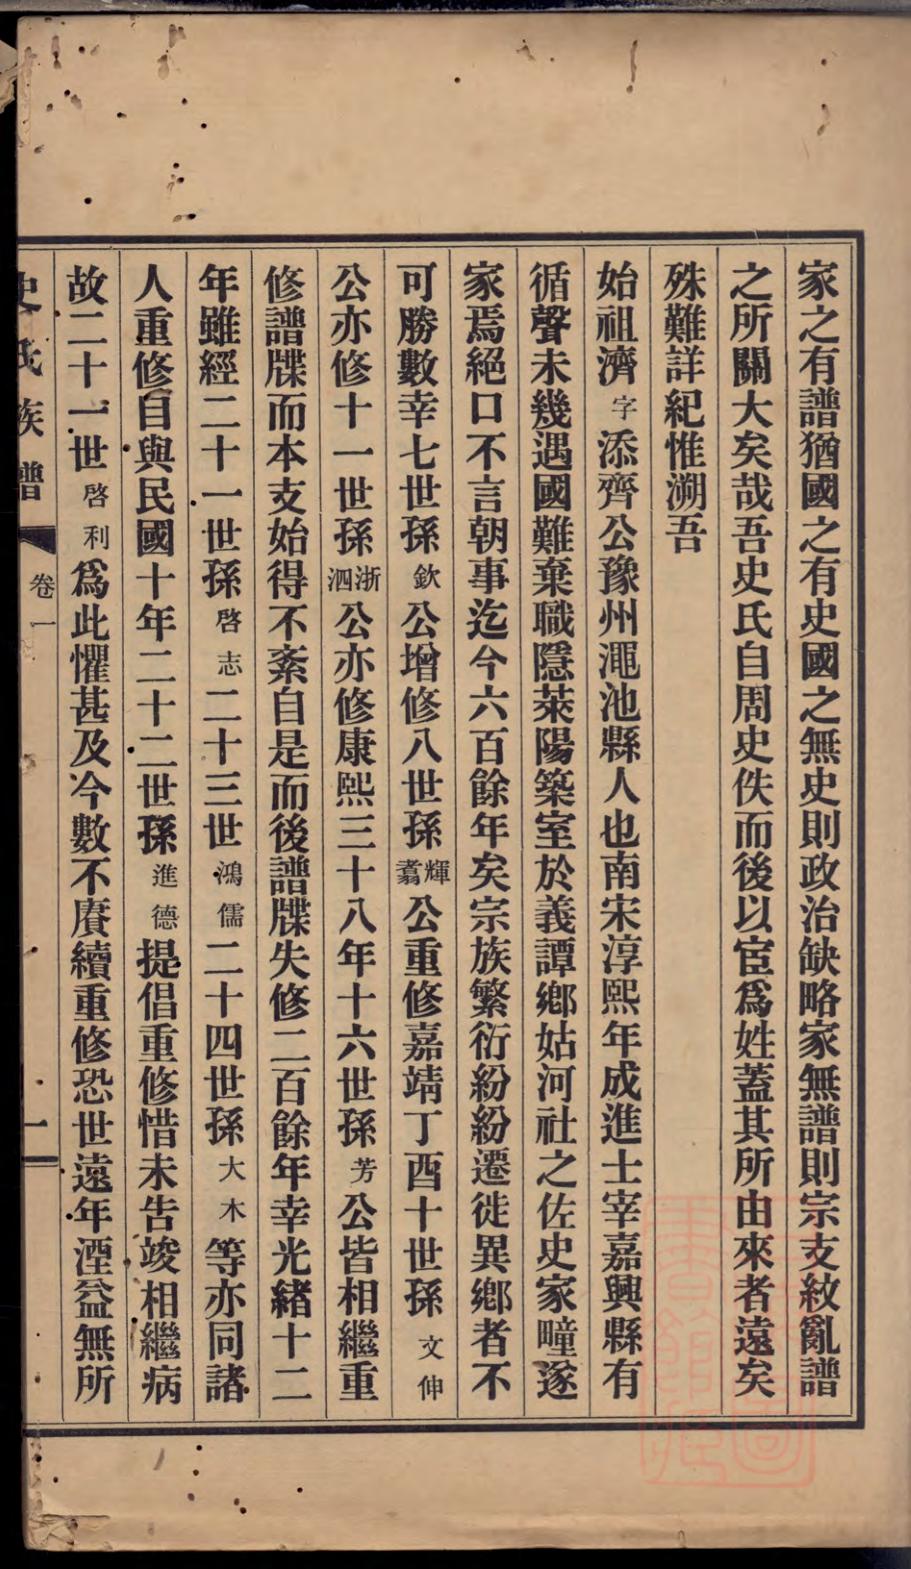 家之有譜猶國之有史國之無史則政治缺略家無譜則宗支紋亂譜
之所關大矣哉吾史氏自周史佚而後以宦爲姓蓋其所由來者遠矣
殊難詳紀惟溯吾
始祖濟字添齊公豫州澠池縣人也南宋淳熙年成進士宰嘉興縣有
循聲未幾遇國難棄職隱萊陽築室於義譚鄉姑河社之佐史家疃遂
家焉絕口不言朝事迄今六百餘年矣宗族繁衍紛紛遷徙異鄉者不
可勝數幸七世孫欽公增修八世孫輝翥公重修嘉靖丁酉十世孫文伸
公亦修十一世孫浙泗公亦修康熙三十八年十六世孫芳公皆相繼重
修譜牒而本支始得不紊自是而後譜牒失修二百餘年幸光緒十二
年雖經二十一世孫啓志二十三世鴻儒二十四世孫大木等亦同諸
人重修自與民國十年二十二世孫進德提倡重修惜未告竣相繼病
故二十一世啓利爲此懼甚及今數不賡續重修恐世遠年湮益無所
史氏族譜 卷一 一